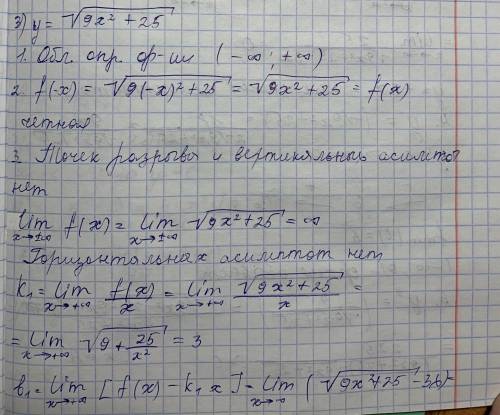 3) y = √(9x² + 25)
1. Обл. опр. ф-ии (-∞; +∞)
2. f(-x) = √(9(-x)² + 25) = √(9x² + 25) = f(x)
четная
3. Точек разрыва и вертикальных асимптот
нет
lim x→±∞ f(x) = lim x→±∞ √(9x² + 25) = ∞
Горизонтальных асимптот нет
k₁ = lim x→+∞ f(x)/x = lim x→+∞ √(9x² + 25)/x =
= lim x→+∞ √(9 + 25/x²) = 3
b₁ = lim x→+∞ [f(x) - k₁x] = lim x→∞ (√(9x² + 25) - 3x) =